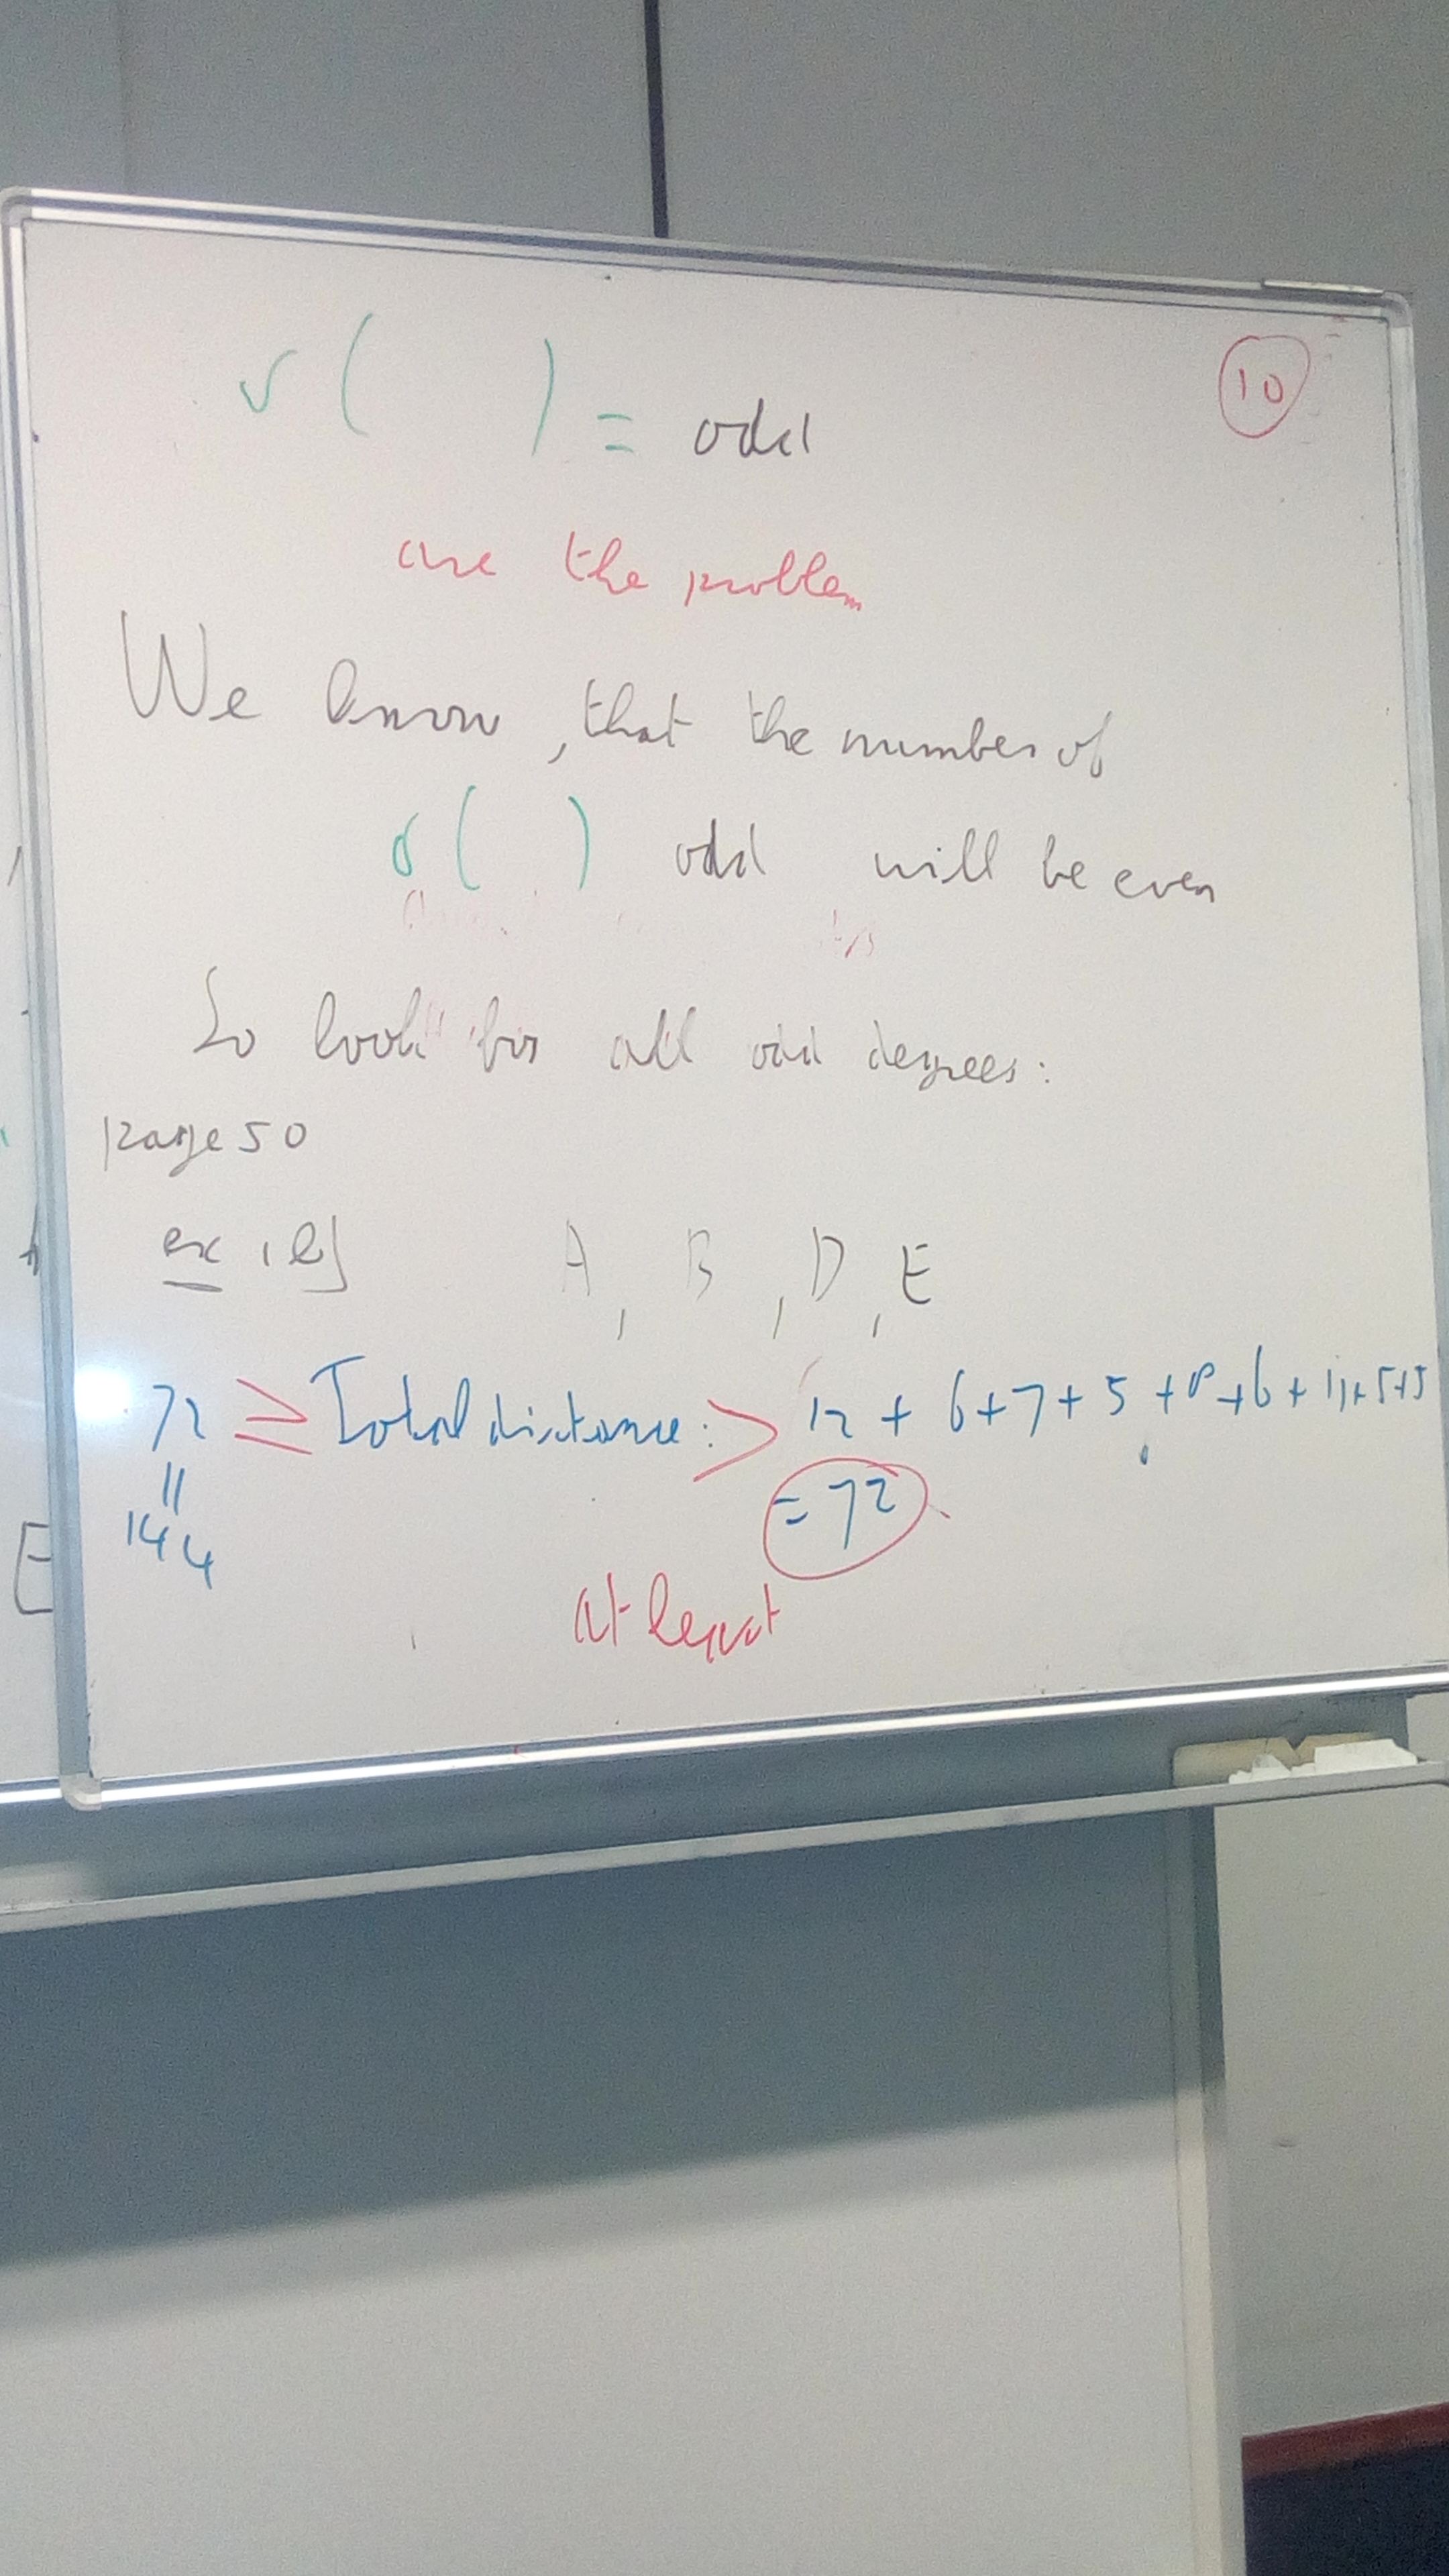 σ( ) = odd
10
are the problem
We know, that the number of
σ( ) odd will be even
So look for all odd degrees:
page 50
ex. e) A, B, D, E
72 ≥ Total distance: > 12 + 6+7+5 +8+6+ 11+5+5
=72
144
at least
E